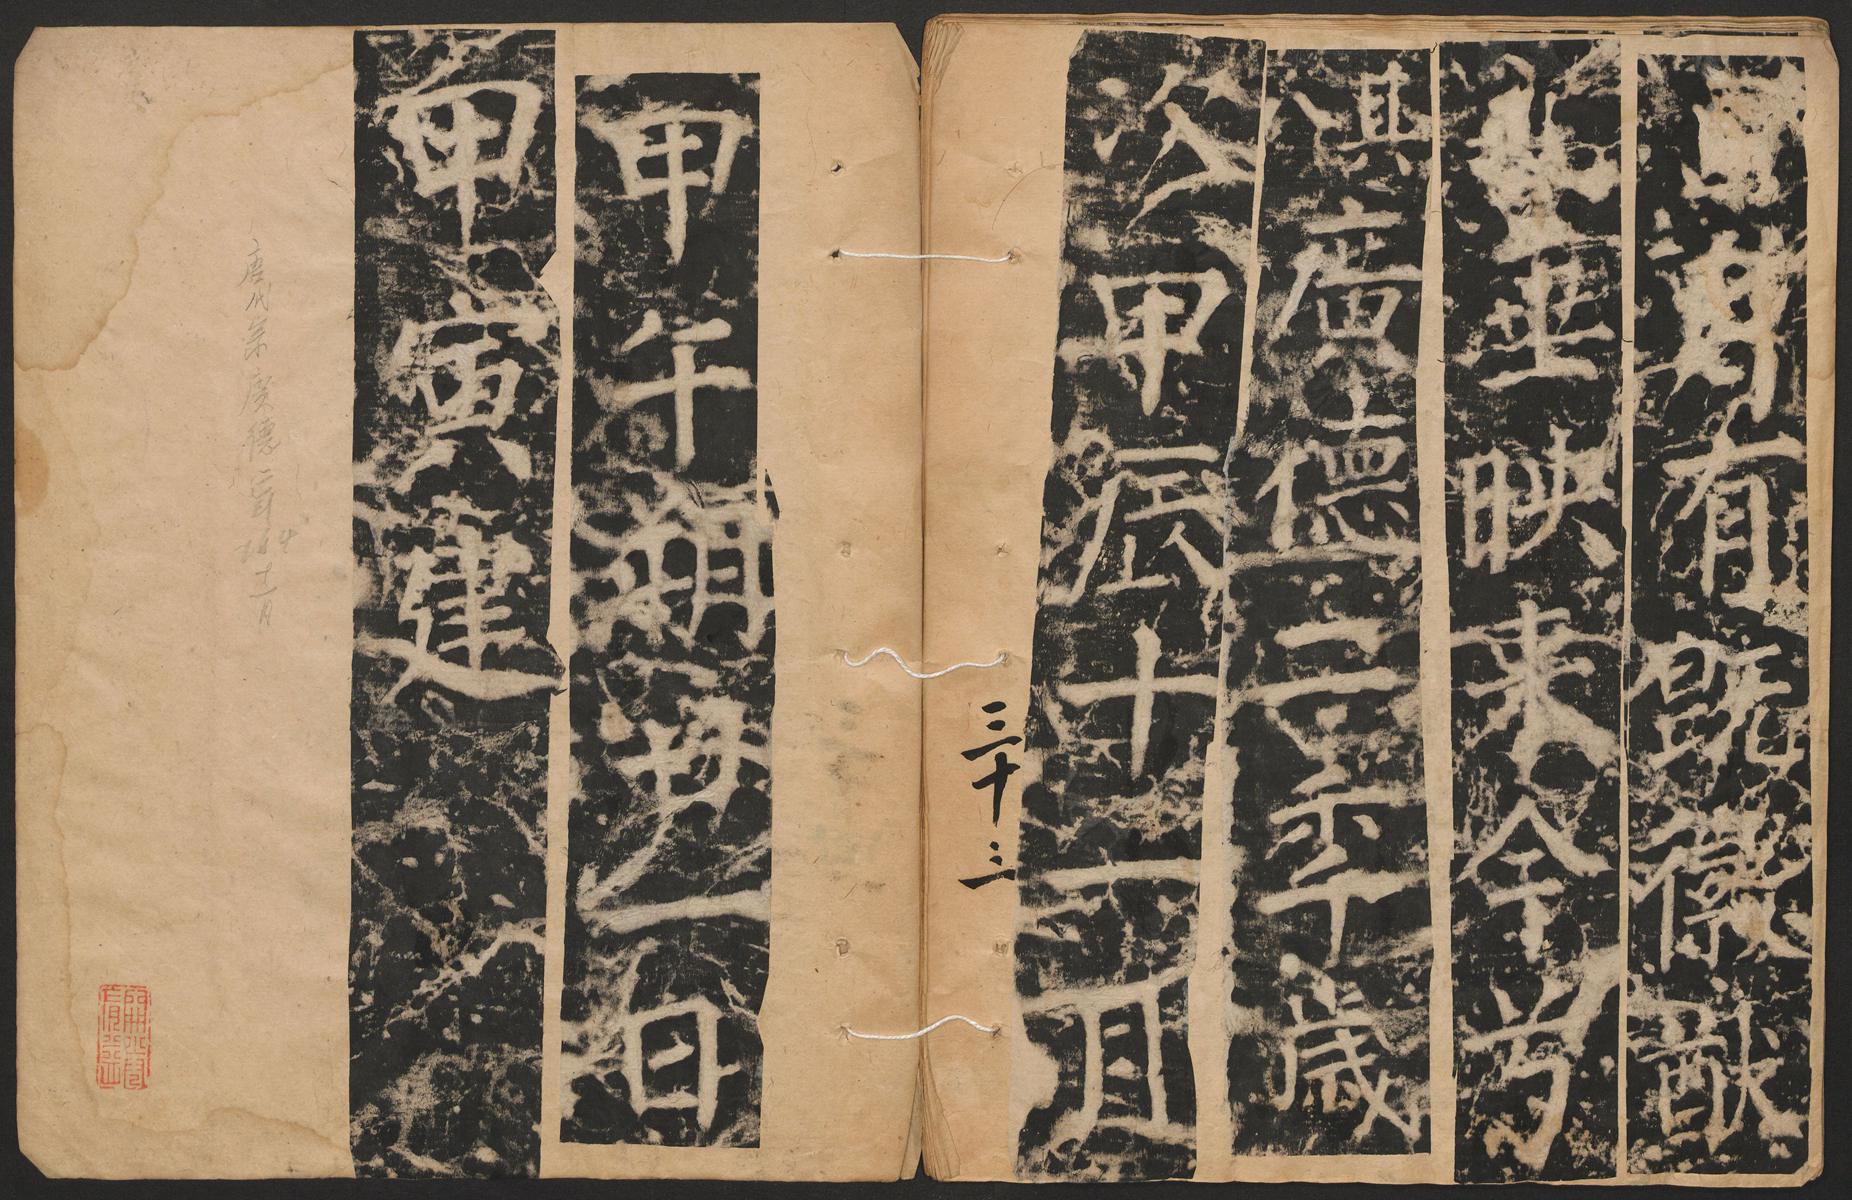 有既徽猷
垂映來今
其八廣德二年歲
次甲辰十一月
三十三
甲午朔廿一日
甲寅建
唐代宗廣德二年
764
十一月